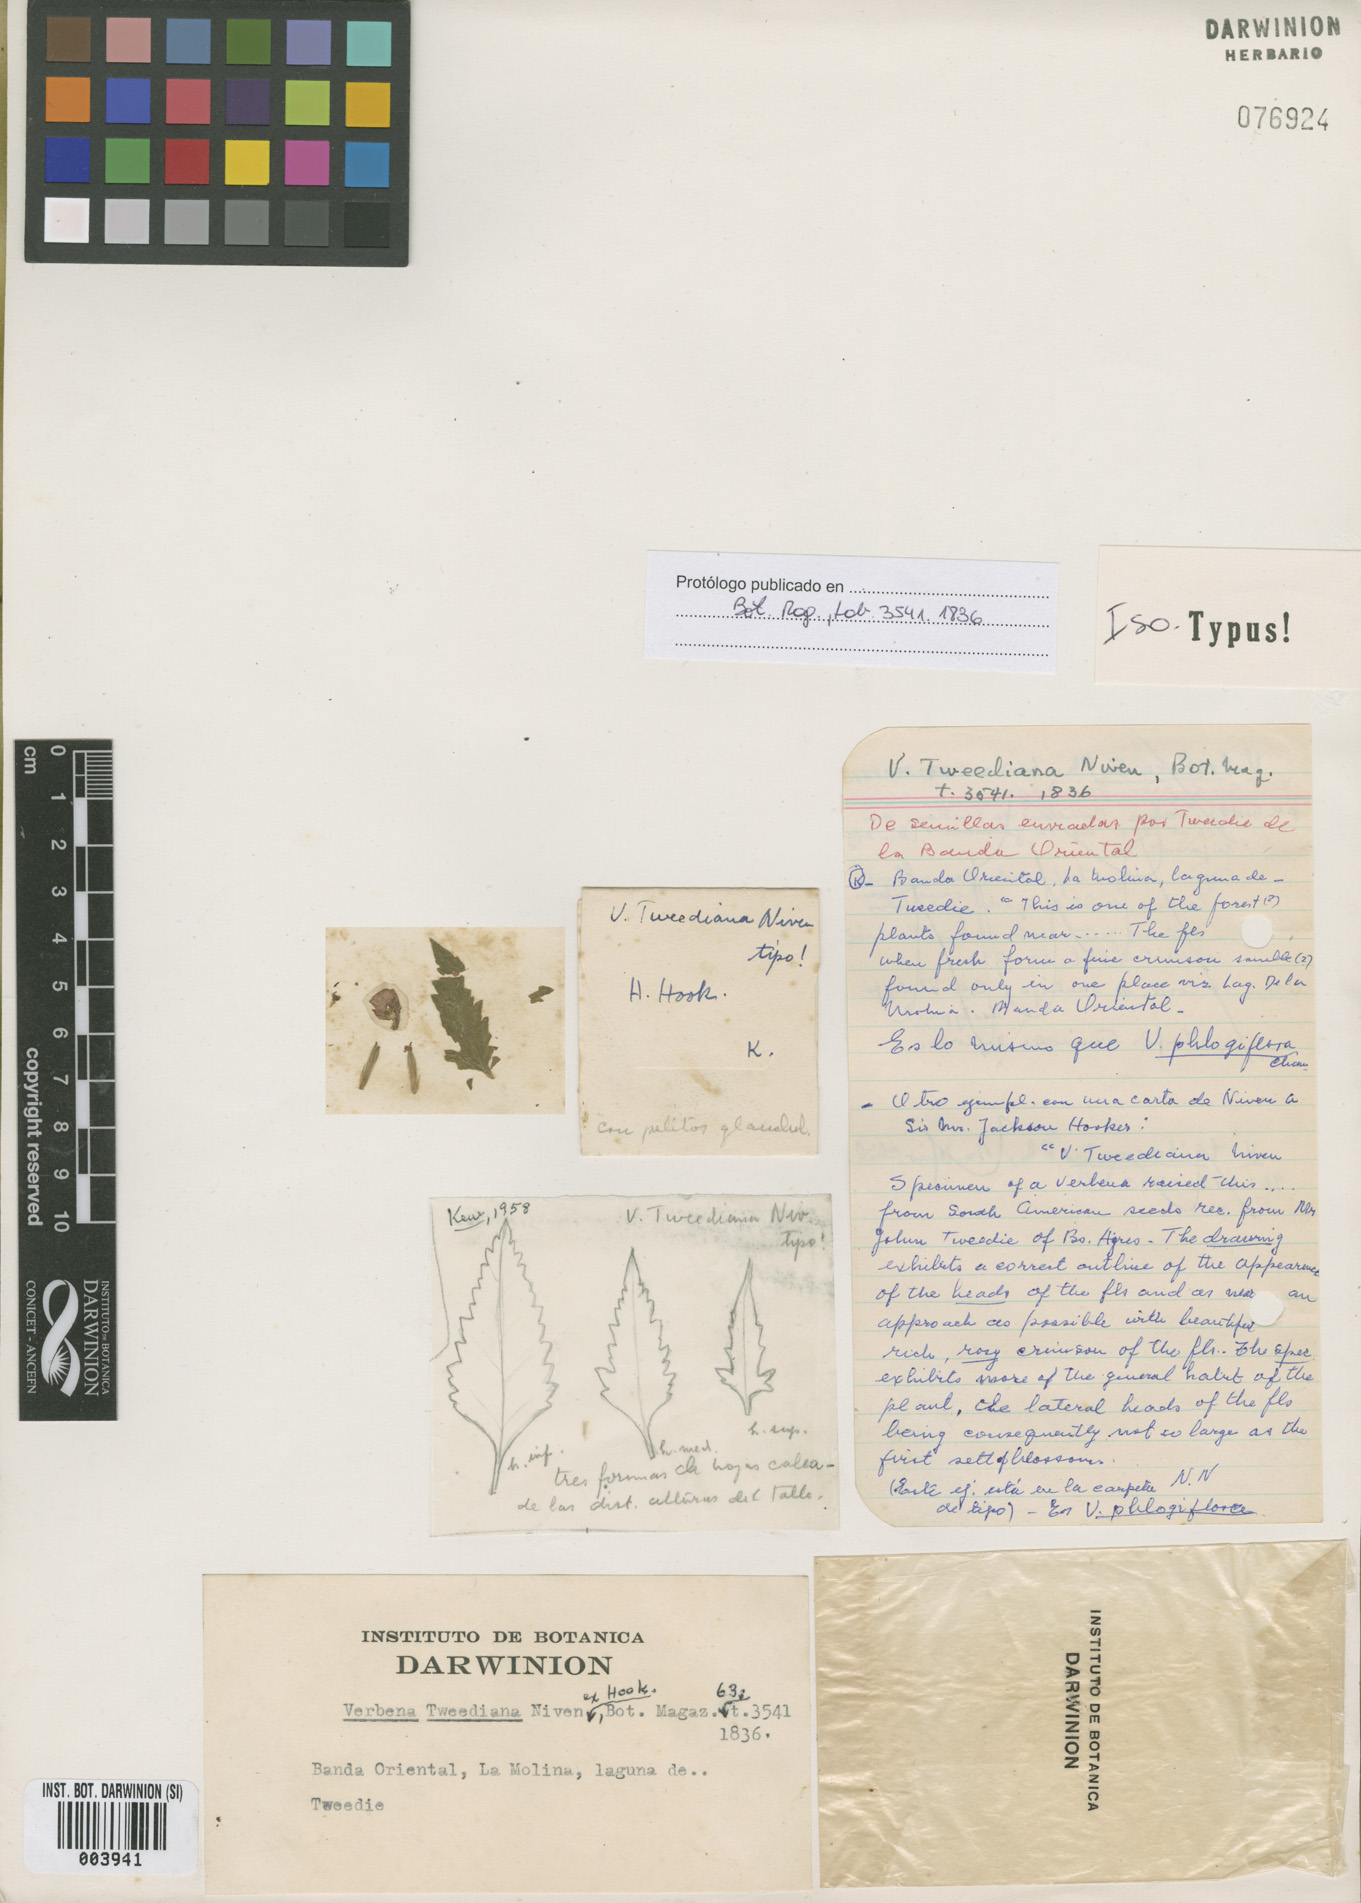 DARWINION
HERBARIO
076924
Protólogo publicado en
Bot. Mag., tab. 3541. 1836
Iso. Typus!
V. Tweediana Niven, Bot. Mag.
t. 3541. 1836
De semillas enviadas por Tweedie de
la Banda Oriental
K - Banda Oriental, La Molina, laguna de -
Tweedie. "This is one of the forest (?)
plants found near ...... The fls
when fresh form a fine crimson
found only in one place viz. Lag. De la
Molina. Banda Oriental -
Es lo mismo que V. phlogiflora
Cham.
- Otro ejempl. con una carta de Niven a
Sir Wm. Jackson Hooker:
"V. Tweediana Niven
Specimen of a Verbena raised this ....
from South American seeds rec. from Mr
John Tweedie of Bs. Ayres - The drawing
exhibits a correct outline of the appearance
of the heads of the fls and as near an
approach as possible with beautiful
rich, rosy crimson of the fls.. The spec
exhibits more of the general habit of the
plant, the lateral heads of the fls
being consequently not so large as the
first sett of blossoms.
N.N
(Este ej. está en la carpeta
de tipo) - Es V. phlogiflora
V. Tweediana Niven
tipo!
H. Hook.
K.
con pelitos glandul.
Kew, 1958
V. Tweediana Niv.
tipo!
h. inf.
h. med.
h. sup.
tres formas de hojas calca-
de las dist. alturas del tallo.
cm 0 1 2 3 4 5 6 7 8 9 10
copyright reserved
INSTITUTO DE BOTANICA
DARWINION
CONICET - ANCEFN
INSTITUTO DE BOTANICA
DARWINION
Verbena Tweediana Niven ex Hook., Bot. Magaz. 63: t.3541
1836.
Banda Oriental, La Molina, laguna de..
Tweedie
INSTITUTO DE BOTANICA
DARWINION
INST. BOT. DARWINION (SI)
003941